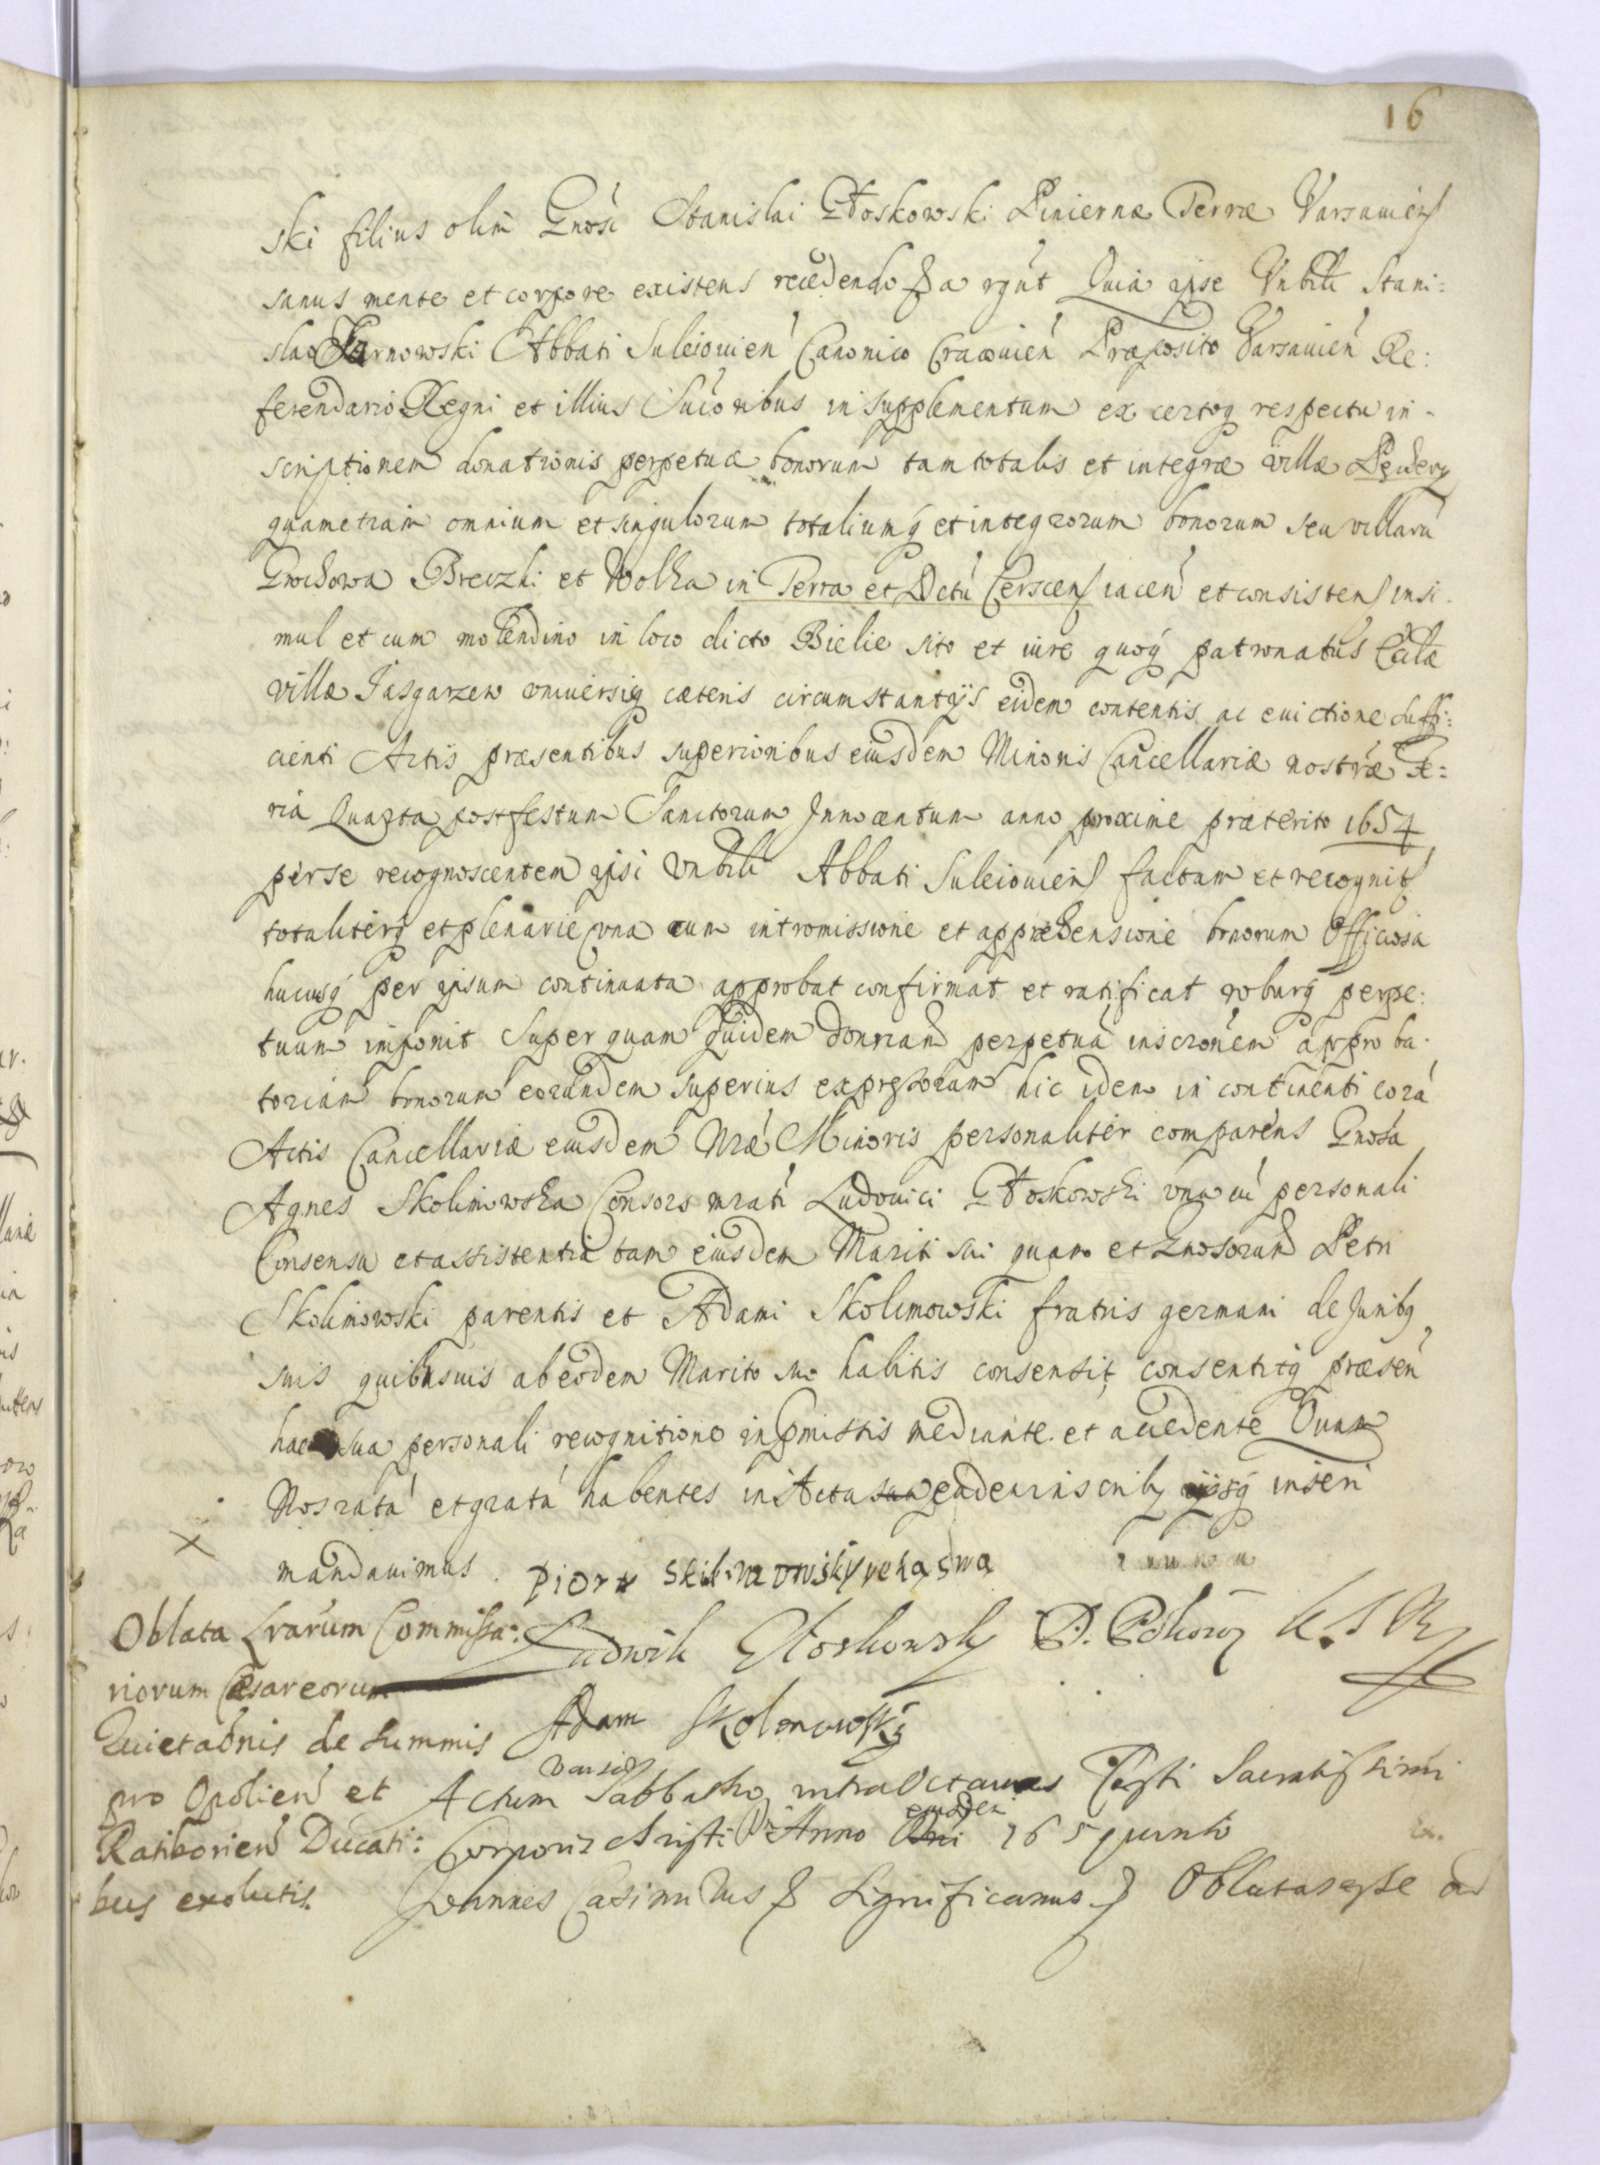 16
ski filius olim Gnosi Stanislai Głoskowski Pincernæ Terræ Varsauien
sanus mente et corpore existens recedendo &a rgnt Quia ipse Vnbili Stani:
slao Sarnowski Abbati Suleiouien Canonico Cracouien Præposito Varsauien Re:
ferendario Regni et illius Succoribus in supplementum ex certoq respectu in-
scriptionem donationis perpetuæ bonorum tam totalis et integræ villæ
quametiam omnium et singulorum totaliumq et integrorum bonorum seu villaru
Grochowa Breczki et Wolka in Terra et Dctu Cerscen iacen et consisten insi
mul et cum molendino in loco dicto Bielie sito et iure quoq patronatus Eccl̃æ
villæ Jasgarzew vniuersisq cæteris circumstantijs eidem contentis ac euictione suffi:
cienti Actis præsentibus superioribus eiusdem Minoris Cancellariæ nostræ Fe:
ria Quarta post festum Sanctorum Innocentum anno proxime præterito 1654
per se recognoscentem ipsi Vnbili Abbati Suleiouien factam et recognit
totaliterq et plenarie vna cum intromissione et apprehensione bonorum Officiosa
hucusq per ipsum continuata approbat confirmat et ratificat roburq perpe:
tuum imponit Super quam quidem donnam perpetua inscronem approba-
toriam bonorum eorundem superius expressorum hic idem in continenti cora
Actis Cancellariæ eiusdem Nræ Minoris personaliter comparens Gnosa
Agnes Skolimowska Consors mrati Ludouici Głoskowski vna cu personali
Consensu et assistentia tam eiusdem Mariti sui quam et Gnosorum Petri
Skolimowski parentis et Adami Skolimowski fratris germani de Juribq
suis quibusuis ab eodem Marito suo habitis consensit, consentitq præsen
hac sua personali recognitione in præmissis mediante et accedente Quam
Nos rata et grata habentes in Acta sua eadem inscribi ijsq inseri
mandauimus. Piotr Skolimowsky ręką swą
Oblata Lrarum Commissa:
riorum Cæsareorum
Quietaonis de summis
pro Opolien et
Ratiborien Ducati:
bus exolutis.
Ludwik Głoskowsky
Adam Skolimowsky
Actum Sabbatho intra Octauas Festi Sacratissimi
Corporis Christi Dni Anno eiusdem Dni 165 quinto
Joannes Casimirus & Significamus & Oblatas esse ad